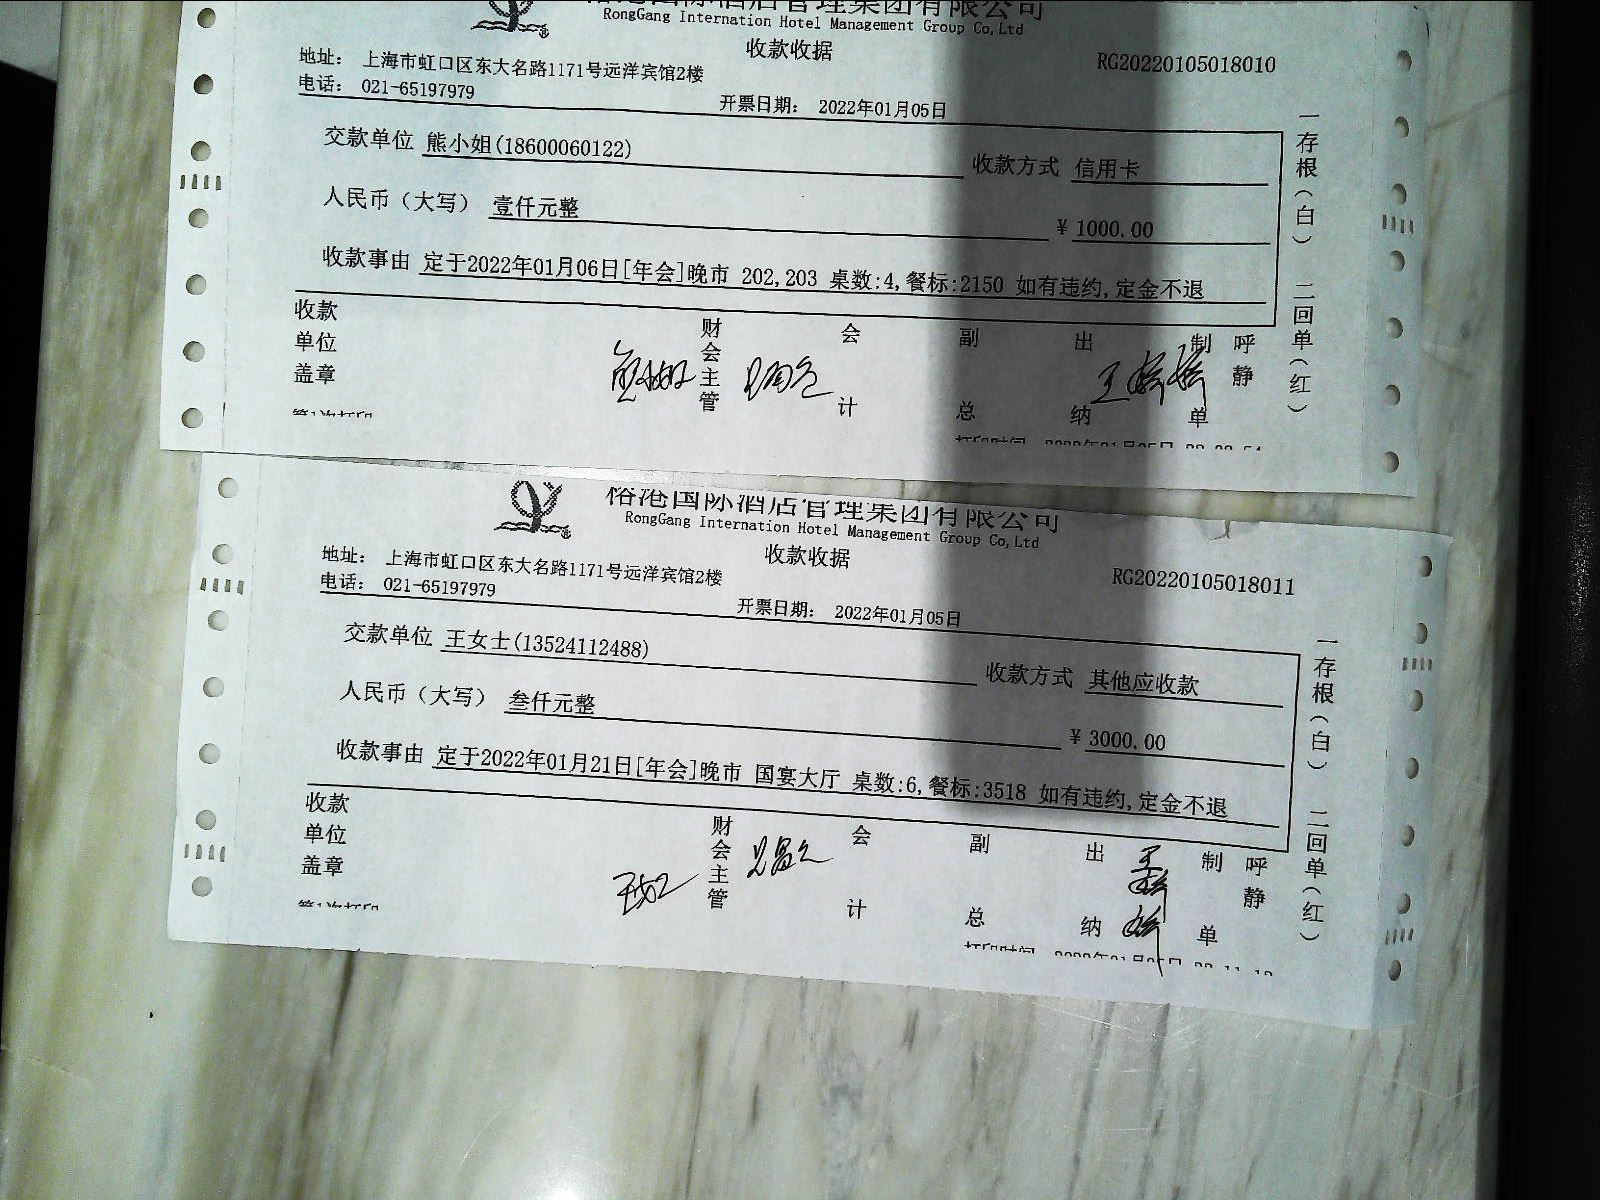 榕港国际酒店管理集团有限公司
RongGang Internation Hotel Management Group Co,Ltd
收款收据
地址： 上海市虹口区东大名路1171号远洋宾馆2楼
RG20220105018010
电话： 021-65197979
开票日期： 2022年01月05日
交款单位 熊小姐(18600060122)
收款方式 信用卡
人民币（大写） 壹仟元整
¥ 1000.00
收款事由 定于2022年01月06日[年会]晚市 202,203 桌数:4,餐标:2150 如有违约,定金不退
一存根（白） 二回单（红）
收款单位盖章
财会主管
会计
副总
出纳
制单
呼静
第1次打印
榕港国际酒店管理集团有限公司
RongGang Internation Hotel Management Group Co,Ltd
收款收据
地址： 上海市虹口区东大名路1171号远洋宾馆2楼
RG20220105018011
电话： 021-65197979
开票日期： 2022年01月05日
交款单位 王女士(13524112488)
收款方式 其他应收款
人民币（大写） 叁仟元整
¥ 3000.00
收款事由 定于2022年01月21日[年会]晚市 国宴大厅 桌数:6,餐标:3518 如有违约,定金不退
一存根（白） 二回单（红）
收款单位盖章
财会主管
会计
副总
出纳
制单
呼静
第1次打印